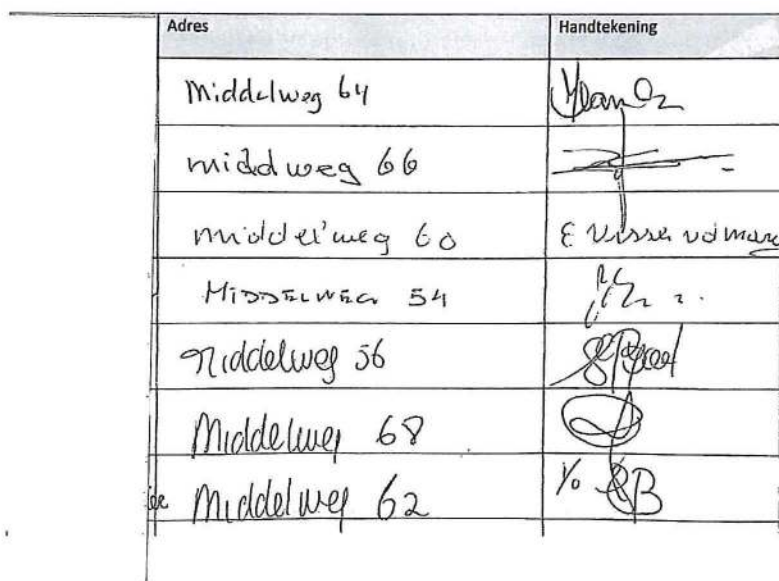 Adres Handtekening
Middelweg 64
middweg 66
middelweg 60 E Visser vd
MIDDELWEG 54
Middelweg 56
Middelweg 68
Middelweg 62